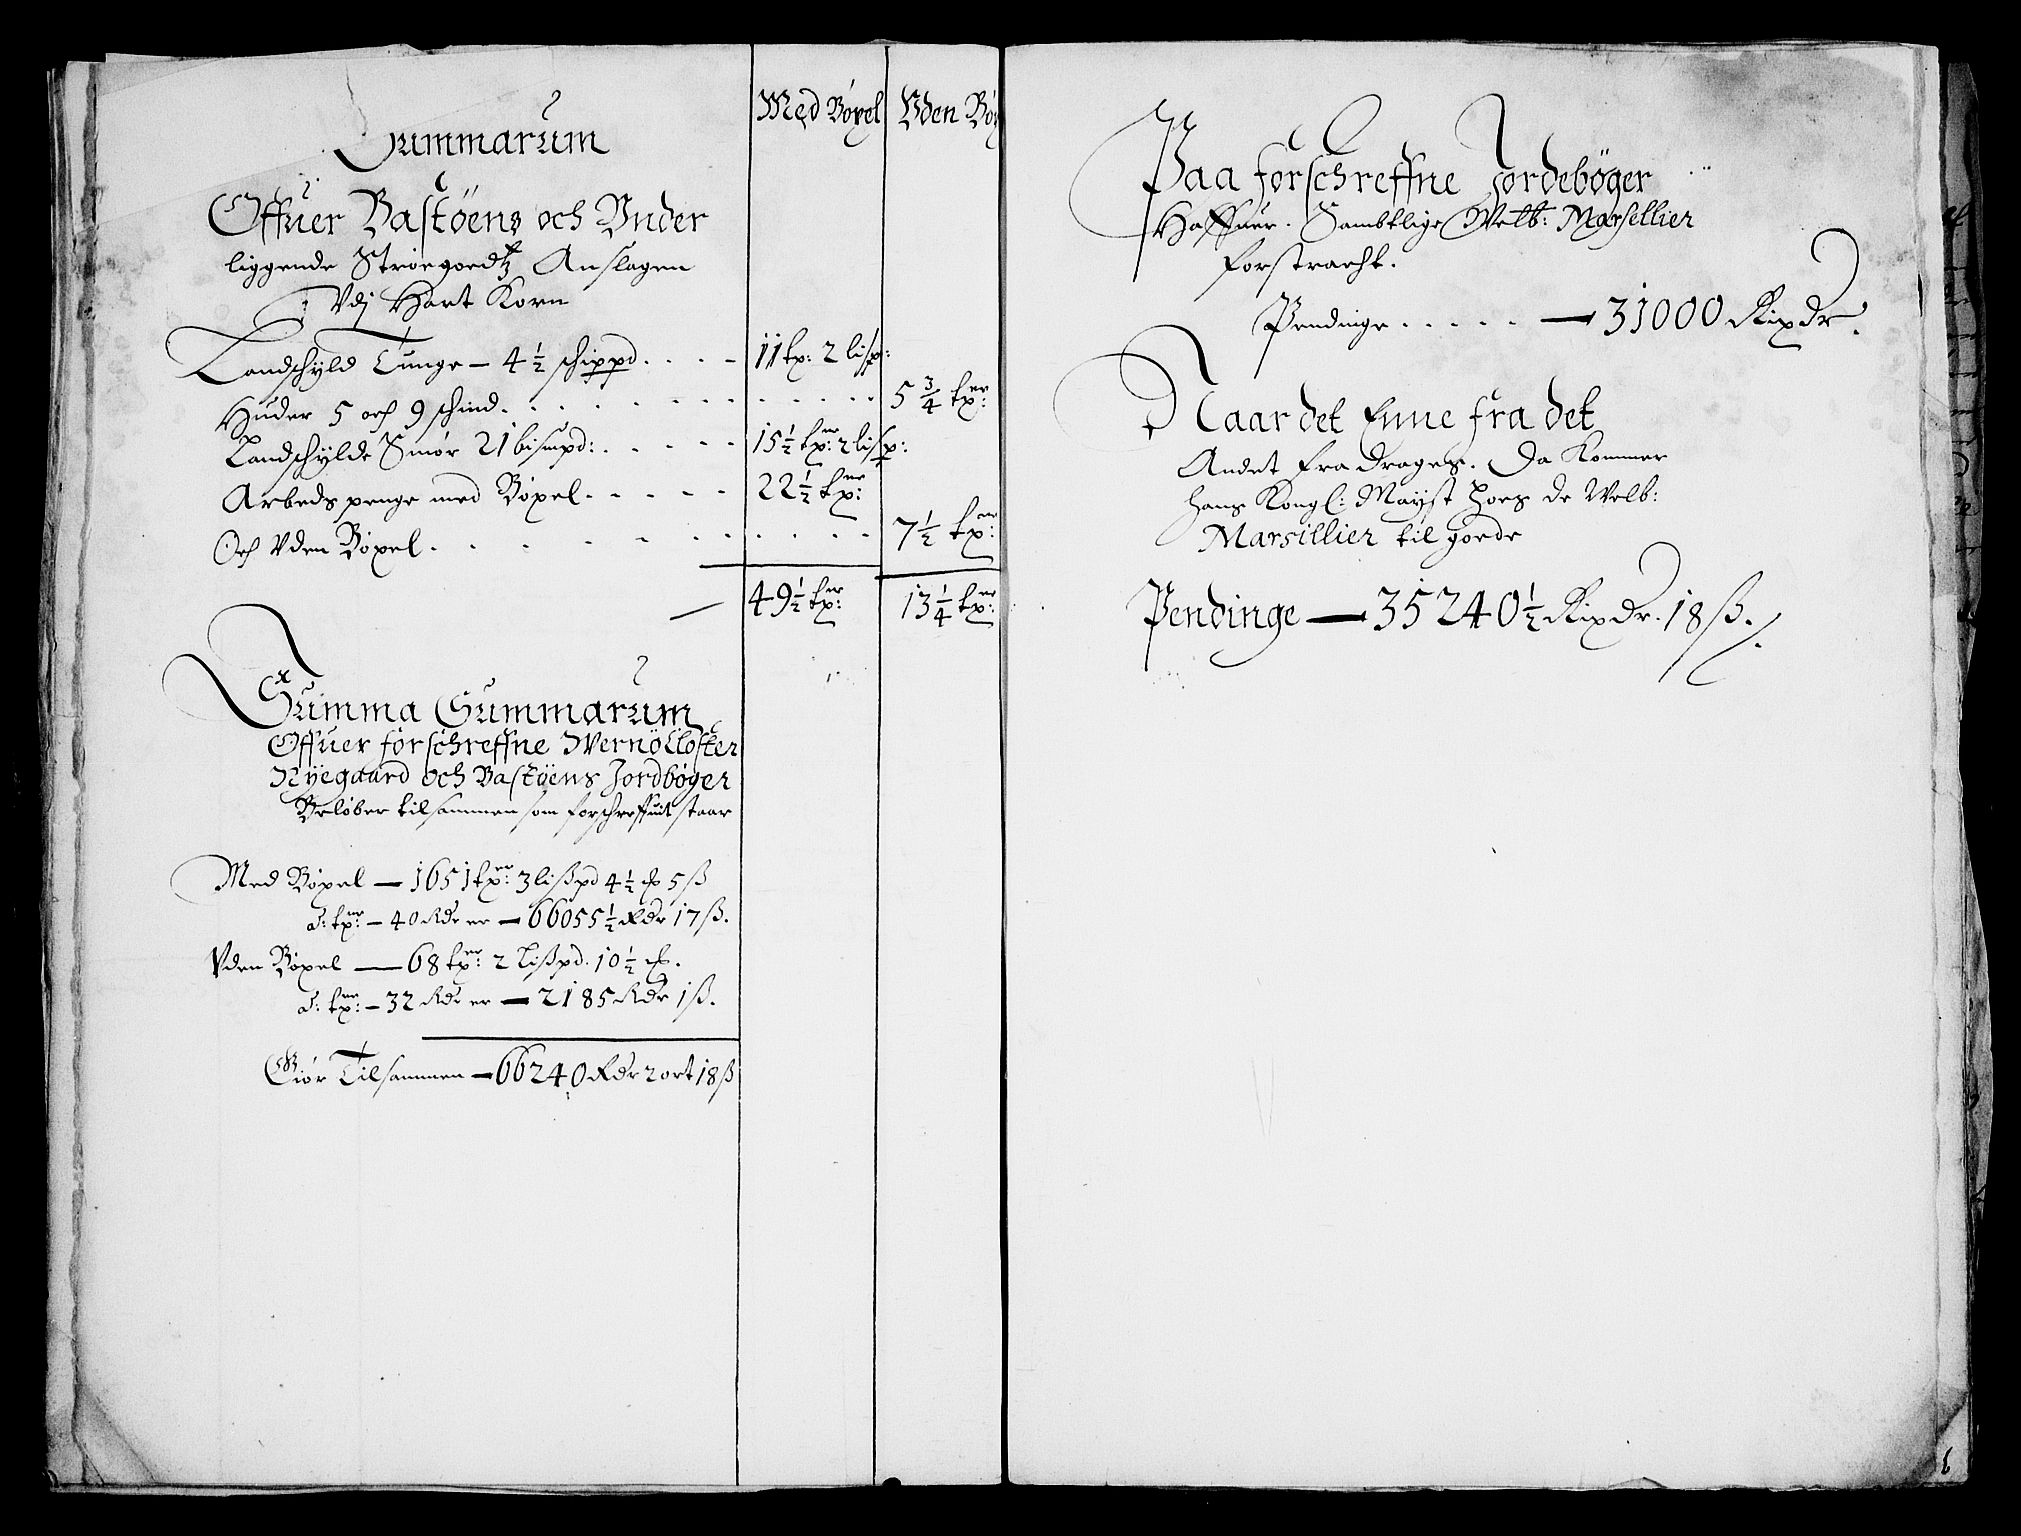 Med Bøxel
Vden Bøx
Summarum
Offuer Bastøens och Vnder
liggende Strøegoedtz Anslagen
Vdj Hart Korn
Landschyld Tunge — 4 1/2 schippd. . . . 11 tx: 2 lisp:
Huder 5 och 9 schind. . . . . . . 5 3/4 txer:
Landschylde Smør 21 bismpd: . . . . 15 1/2 txer: 2 lisp:
Arbeds penge med Bøxel. . . . . 22 1/2 txer:
Och Vden Bøxel. . . . . . . . 7 1/2 txer:
— 49 1/2 txer: 13 1/4 txer:
Summa Summarum
Offuer forschreffne Wernø Closter
Nyegaard och Bastøens Jordbøger
Beløber tilsammen som forschreffuit staar
Med Bøxel — 1651 txer: 3 lißpd 4 1/2 ℔ 5 ß
a: txer: — 40 Rdr er — 66055 1/2 Rdr 17 ß.
Vden Bøxel — 68 txer: 2 Lißpd. 10 1/2 ℔.
a: txer: — 32 Rdr er — 2185 Rdr 1 ß.
Giør Tilsammen — 66240 Rdr 2 ort 18 ß
Paa forschreffne Jordebøger
Haffuer. Sambtlige Welb: Marsellier
forstracht.
Pendinge . . . . . — 31000 Rixdr.
Naar det Enne fra det
Andet fra drages. Da Kommer
hans Kongl: Mayst hoes de Welb:
Marsillier til gode
Pendinge — 35240 1/2 Rixdr. 18 ß.